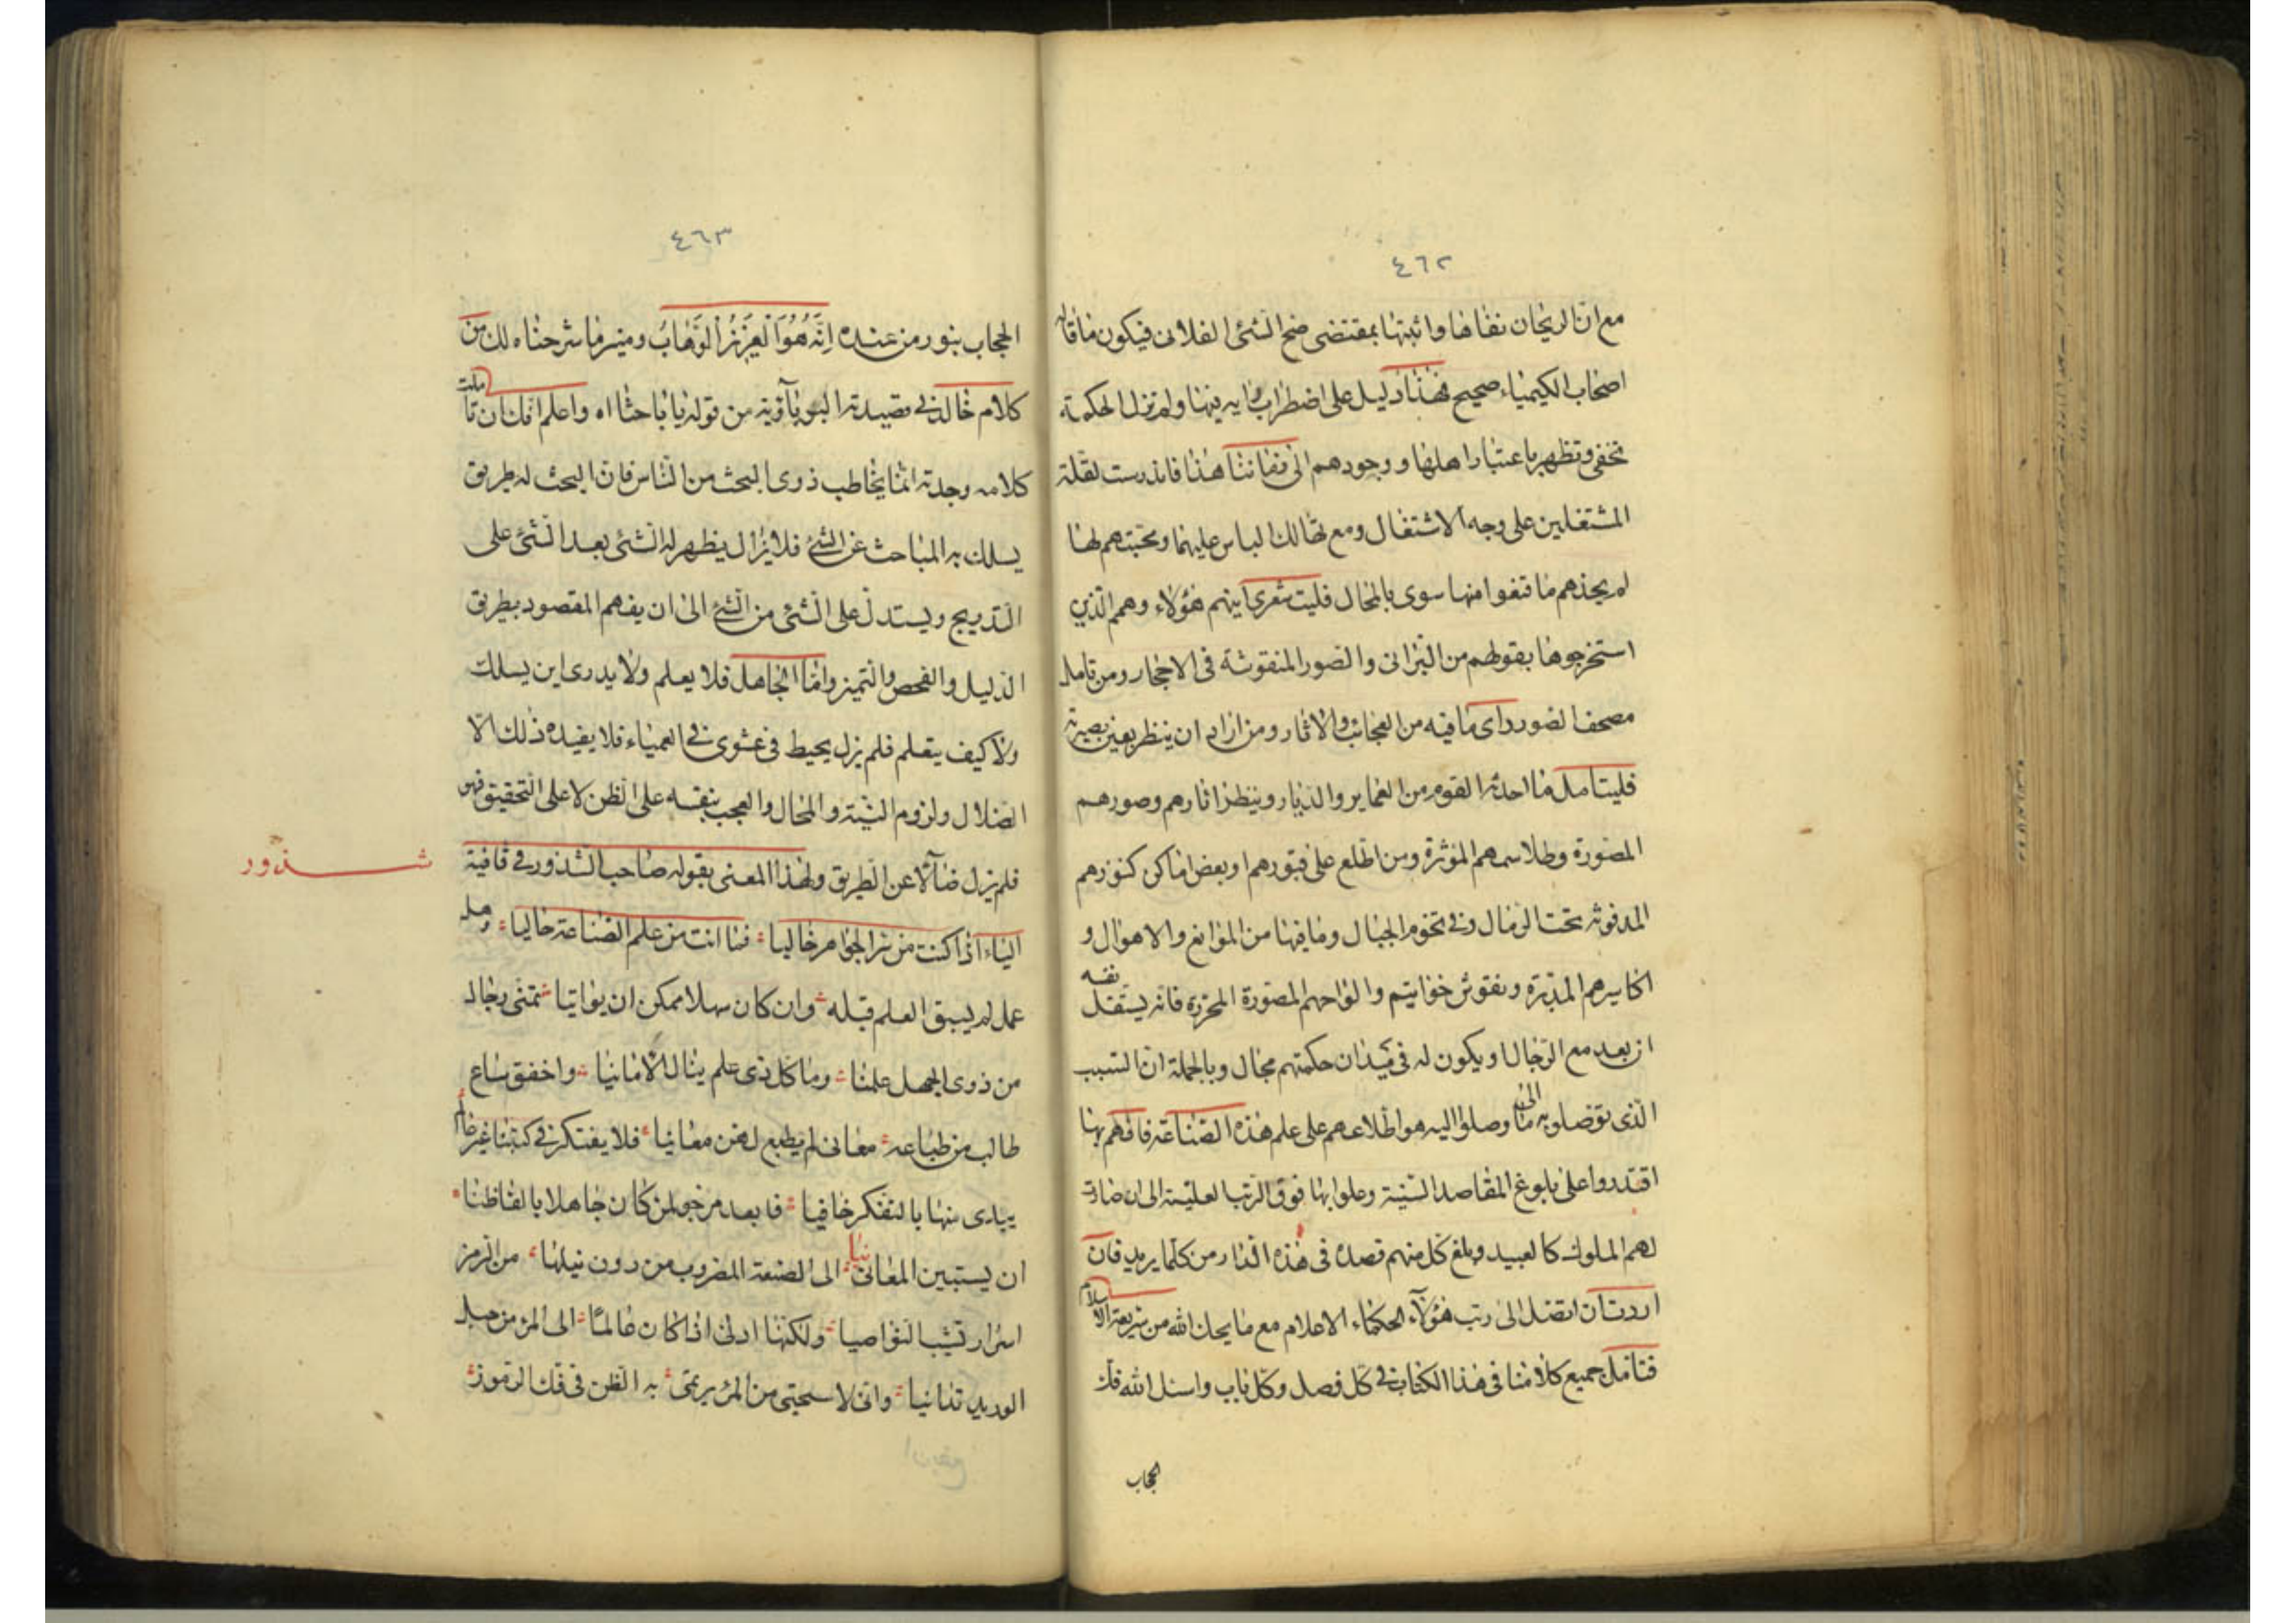 ٤٦٢
مع ان الريحان نفاها واثبتها بمقتضى صح الشئ الفلانى فيكون ما قاله
اصحاب الكيمياء صحيح فهذا دليل على اضطراب رايه فيها ولم تزل الحكمة
تخفى وتظهر باعتبار اهلها ووجودهم الى زماننا هذا فاندرست لقلة
المشتغلين على وجه الاشتغال ومع تهالك الناس عليها ومحبتهم لها
لم يجدهم ما قنفوا منها سوى بالمحال فليت شعرى اينهم هؤلاء وهم الذين
استخرجوها بقولهم من البرانى والصور المنقوشة فى الاحجار ومن تامل
مصحف الصور راى ما فيه من العجائب والاثار ومن اراد ان ينظر بعين بصيرته
فليتامل ما احدثه القوم من العماير والديار وينظر اثارهم وصورهم
المصورة وطلاسمهم المؤثرة ومن اطلع على قبورهم وبعض اماكن كنوزهم
المدفونه تحت الرمال وفى تخوم الجبال وما فيها من الموانع والاهوال و
اكاسيرهم المدبرة ونقوش خواتيم والواحهم المصورة المحررة فانه يستقل نفسه
ان يعد مع الرجال او يكون له فى ميدان حكمتهم مجال وبالجملة ان السبب
الذى توصلوا به الى ما وصلوا اليه هو اطلاعهم على علم هذه الصناعة فانهم بها
اقتدروا على بلوغ المقاصد السنية وعلوا بها فوق الرتب العلية الى ان صارت
لهم الملوك كالعبيد وبلغ كل منهم قصده فى هذه الدار من كلما يريد فان
اردت ان تصل الى رتب هؤلاء الحكماء الاعلام مع ما يحك الله من شريعة الاسلام
فتامل جميع كلامنا فى هذا الكتاب فى كل فصل وكل باب واسئل الله فك
الحجاب
٤٦٣
الحجاب بنور من عنده اِنَّهُ هُوَ الْعَزِيزُ الْوَهَّابُ وميز ما شرحناه لك من
كلام خالد فى قصيدته البويآوية من قوله يا باحثا اه واعلم انك ان تاملت
كلامه وجدته انما يخاطب ذوى البحث من الناس فان البحث له طريق
يسلك به المباحث عن الشئ فلا يزال يظهر له الشئ بعد الشئ على
التدريج ويستدل على الشئ من الشئ الى ان يفهم المقصود بطريق
الدليل والفحص والتميز واما الجاهل فلا يعلم ولا يدرى اين يسلك
ولا كيف يتعلم فلم يزل يحيط فى عشوى فى العمياء فلا يفيده ذلك الا
الضلال ولزوم التيه والمحال والعجب بنفسه على الظن لا على التحقيق فهو
فلم يزل ضآلا عن الطريق ولهذا المعنى يقوله صاحب الشذور فى قافية
شذور
الياء اذا كنت من سر الجواهر خاليا فما انت من علم الصناعة حاليا وهل
عمل لم يسبق العلم قبله وان كان سهلا ممكن ان يواتيا تمنى رجال
من ذوى الجهل علمنا وما كل ذى علم ينال الامانيا واخفق ساع
طالب من طباعه معانى لم يطبع لهن معانيا فلا يفتكر فى كتبنا غير عالم
يبارى منها بالتفكر خافيا فابعد مرجو لمن كان جاهلا بالفاظنا
ان يستبين المعانيا الى الصنعة المضروب من دون نيلها من الرمز
اسرار تشيب النواصيا ولكنها ادنى اذا كان عالما الى المرء من حبل
الوريد تدانيا وانى لاستحيى من المرء يرتمى به الظن فى فك الرموز